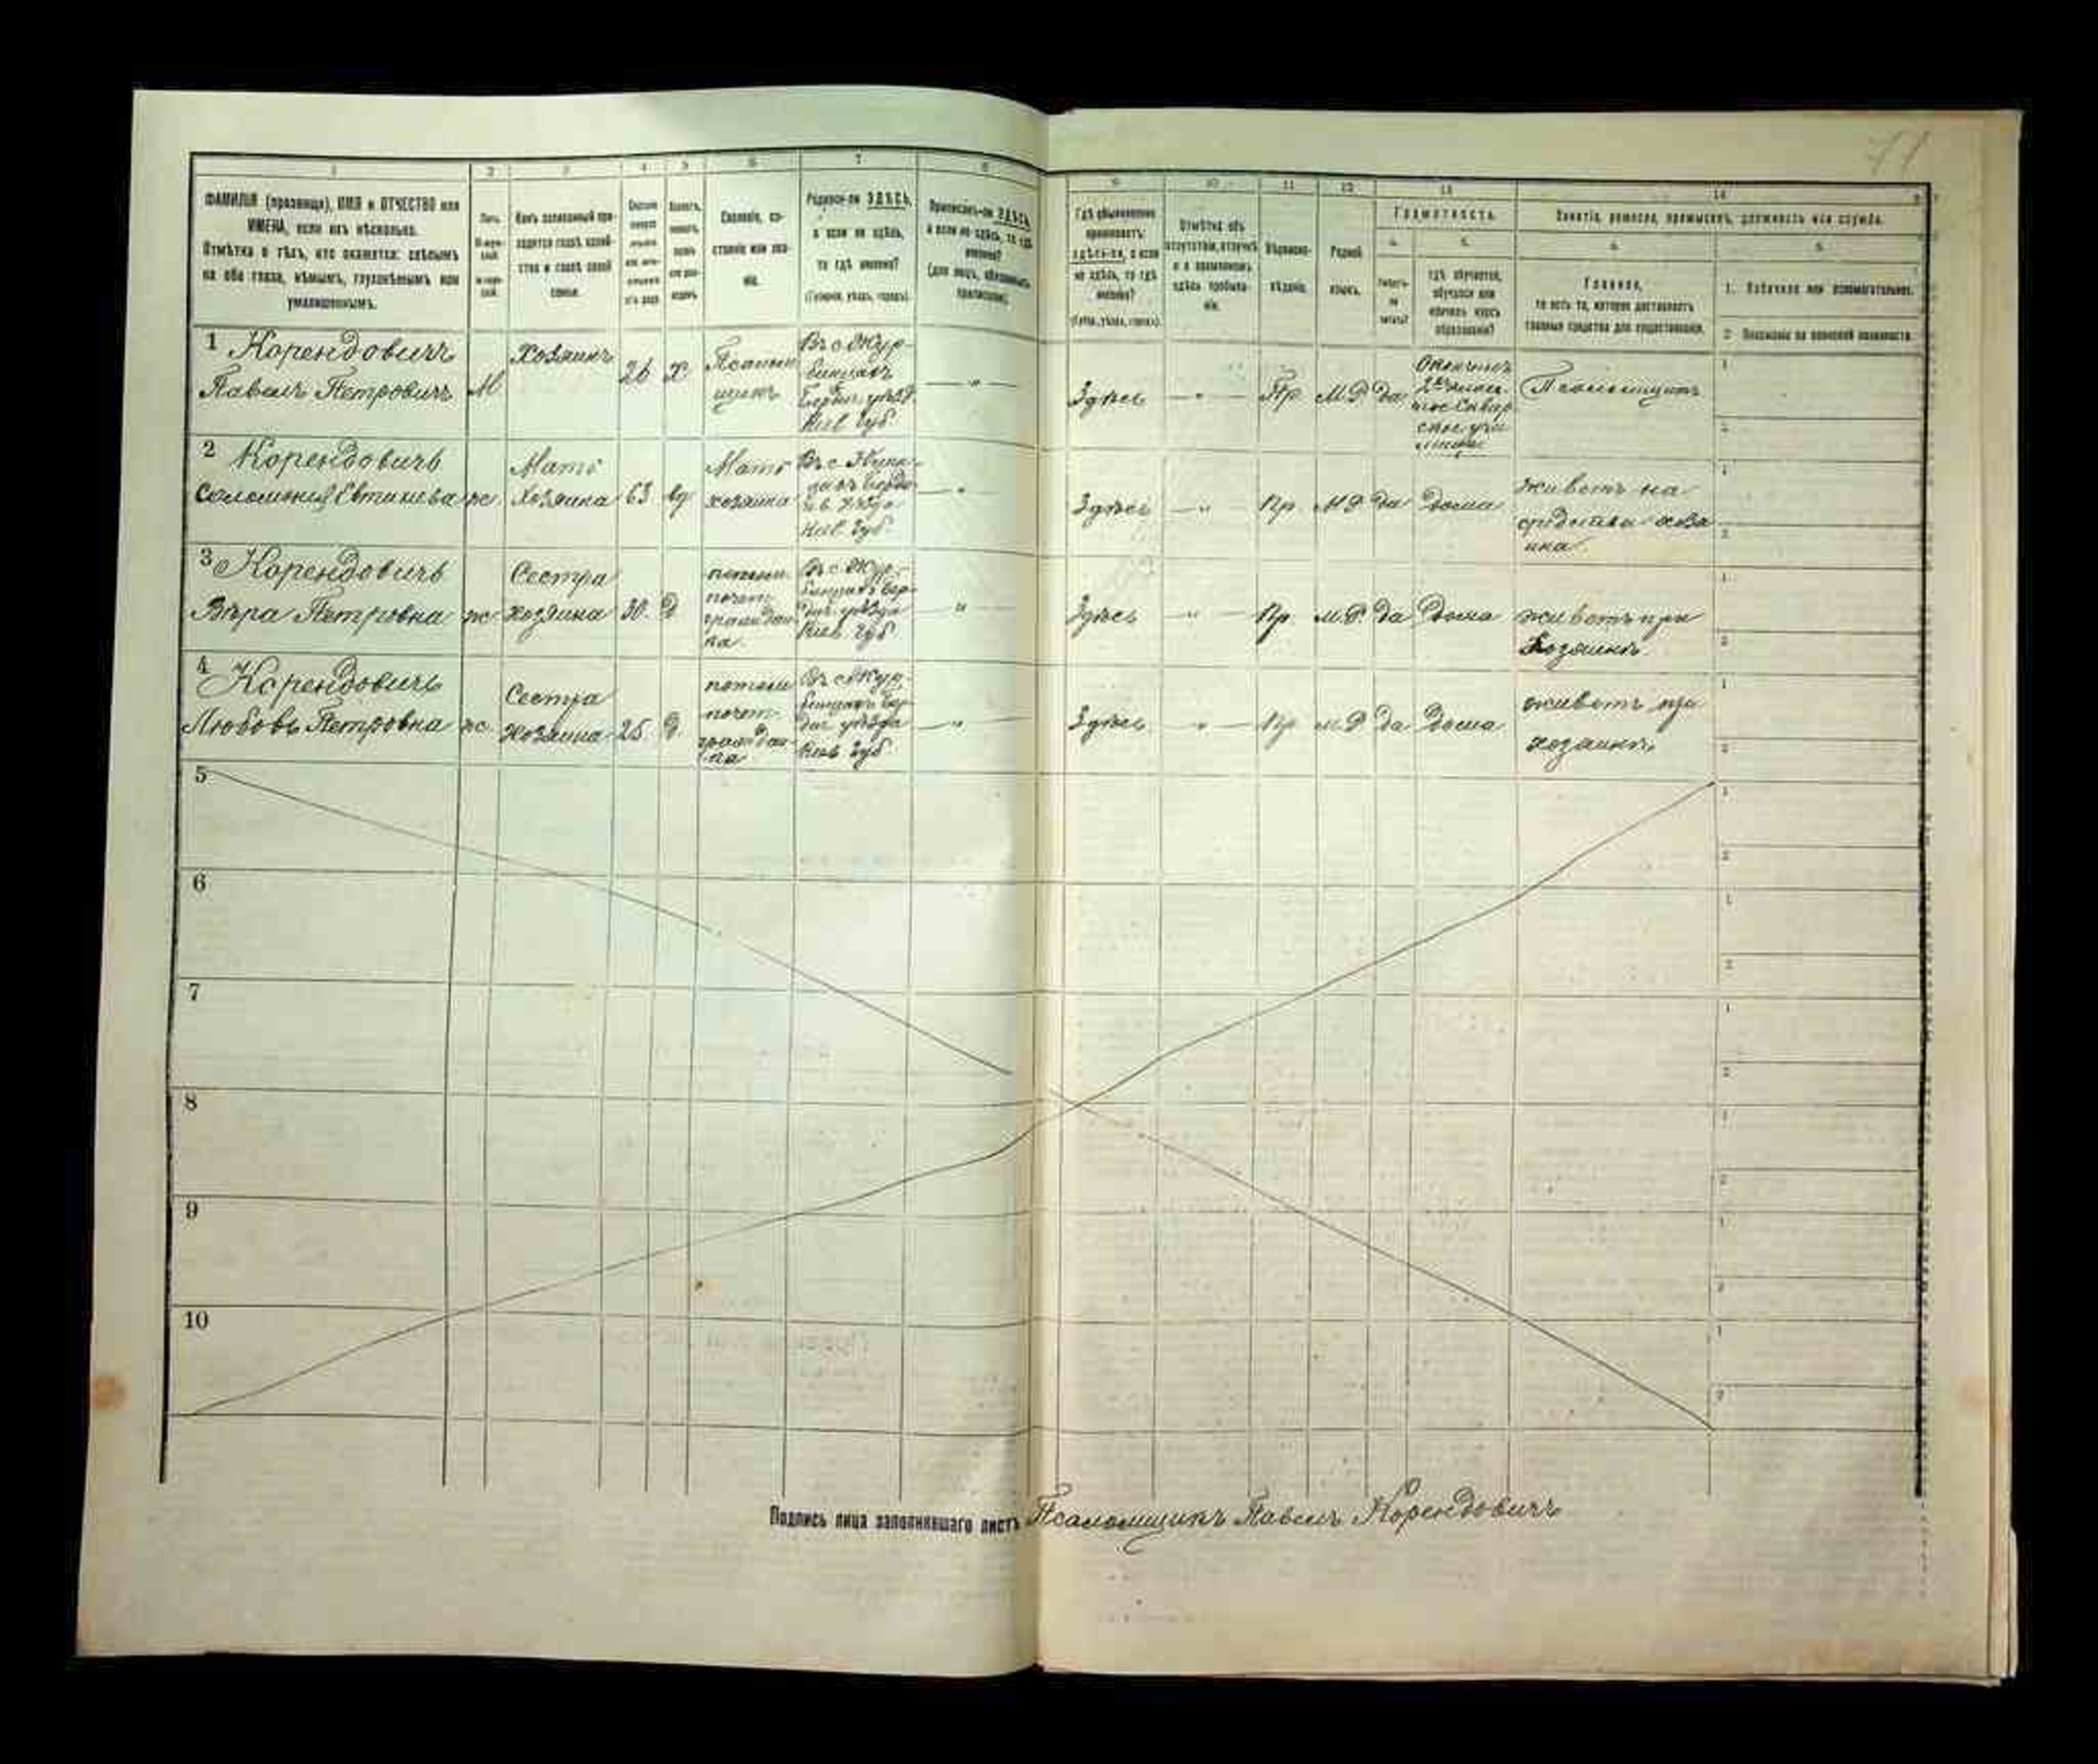 71
1 2 3 4 5 6 7 8 9 10 11 12 13 14
ФАМИЛІЯ (прозвище), ИМЯ и ОТЧЕСТВО или
ИМЕНА, если ихъ нѣсколько.
Отмѣтка о тѣхъ, кто окажется: слѣпымъ
на оба глаза, нѣмымъ, глухонѣмымъ или
умалишеннымъ.
Полъ.
Какъ записанный при-
ходится главѣ хозяй-
ства и главѣ своей
семьи.
Сословіе, со-
стояніе или зва-
ніе.
Родился-ли ЗДѢСЬ,
а если не здѣсь,
то гдѣ именно?
(Губернія, уѣздъ, городъ).
Приписанъ-ли ЗДѢСЬ,
а если не здѣсь, то гдѣ
именно?
(для лицъ, обязанныхъ
припискою).
Гдѣ обыкновенно
проживаетъ:
здѣсь-ли, а если
не здѣсь, то гдѣ
именно?
(Губ., уѣздъ, городъ).
Отмѣтка объ
отсутствіи, отлучкѣ
и о временномъ
здѣсь пребыва-
ніи.
Вѣроиспо-
вѣданіе.
Родной
языкъ.
Грамотность.
а. б.
Умѣетъ-
ли
читать?
гдѣ обучается,
обучался или
кончилъ курсъ
образованія?
Занятіе, ремесло, промыселъ, должность или служба.
а. б.
Главное,
то есть то, которое доставляетъ
главныя средства для существованія.
1. Побочное или вспомогательное.
2. Положеніе по воинской повинности.
1 Корендовичъ
Павелъ Петровичъ
М
Хозяинъ
26
Х
Псалом
щикъ
Въ с Жур-
бинцахъ
Бердич. уѣзд.
Кіев. Губ
— „ —
Здѣсь
— „ —
Пр
М.Р
да
Окончилъ
2хъ клас-
ное Сквир
ское учи
лище
Псаломщикъ
1
2
2 Корендовичъ
Соломонія Евтихіева
ж
Мать
Хозяина
63
вд
Мать
хозяина
Кіев. Губ
— „
Здѣсь
— „
Пр
М Р
да
Дома
живетъ на
средства хозя
ина
1
2
3 Корендовичъ
Вѣра Петровна
ж
Сестра
хозяина
30.
Д
потом.
почет.
граждан-
ка.
Въ с Жур-
бинцахъ Бер-
дич. уѣзда
Кіев. Губ
— „ —
Здѣсь
— „ —
Пр.
М.Р.
да
Дома
живетъ при
Хозяинѣ.
1
2
4 Корендовичъ
Любовь Петровна
ж
Сестра
Хозяина
25
Д.
потом
почет-
граждан-
ка
Въ с Жур-
бинцахъ Бер-
дич уѣзда
Кіев Губ
— „
Здѣсь
„ —
Пр
М Р
да
Дома
живетъ при
хозяинѣ
1
2
5
1
2
6
1
2
7
1
2
8
1
2
9
1
2
10
1
2
Подпись лица заполнившаго листъ Псаломщикъ Павелъ Корендовичъ